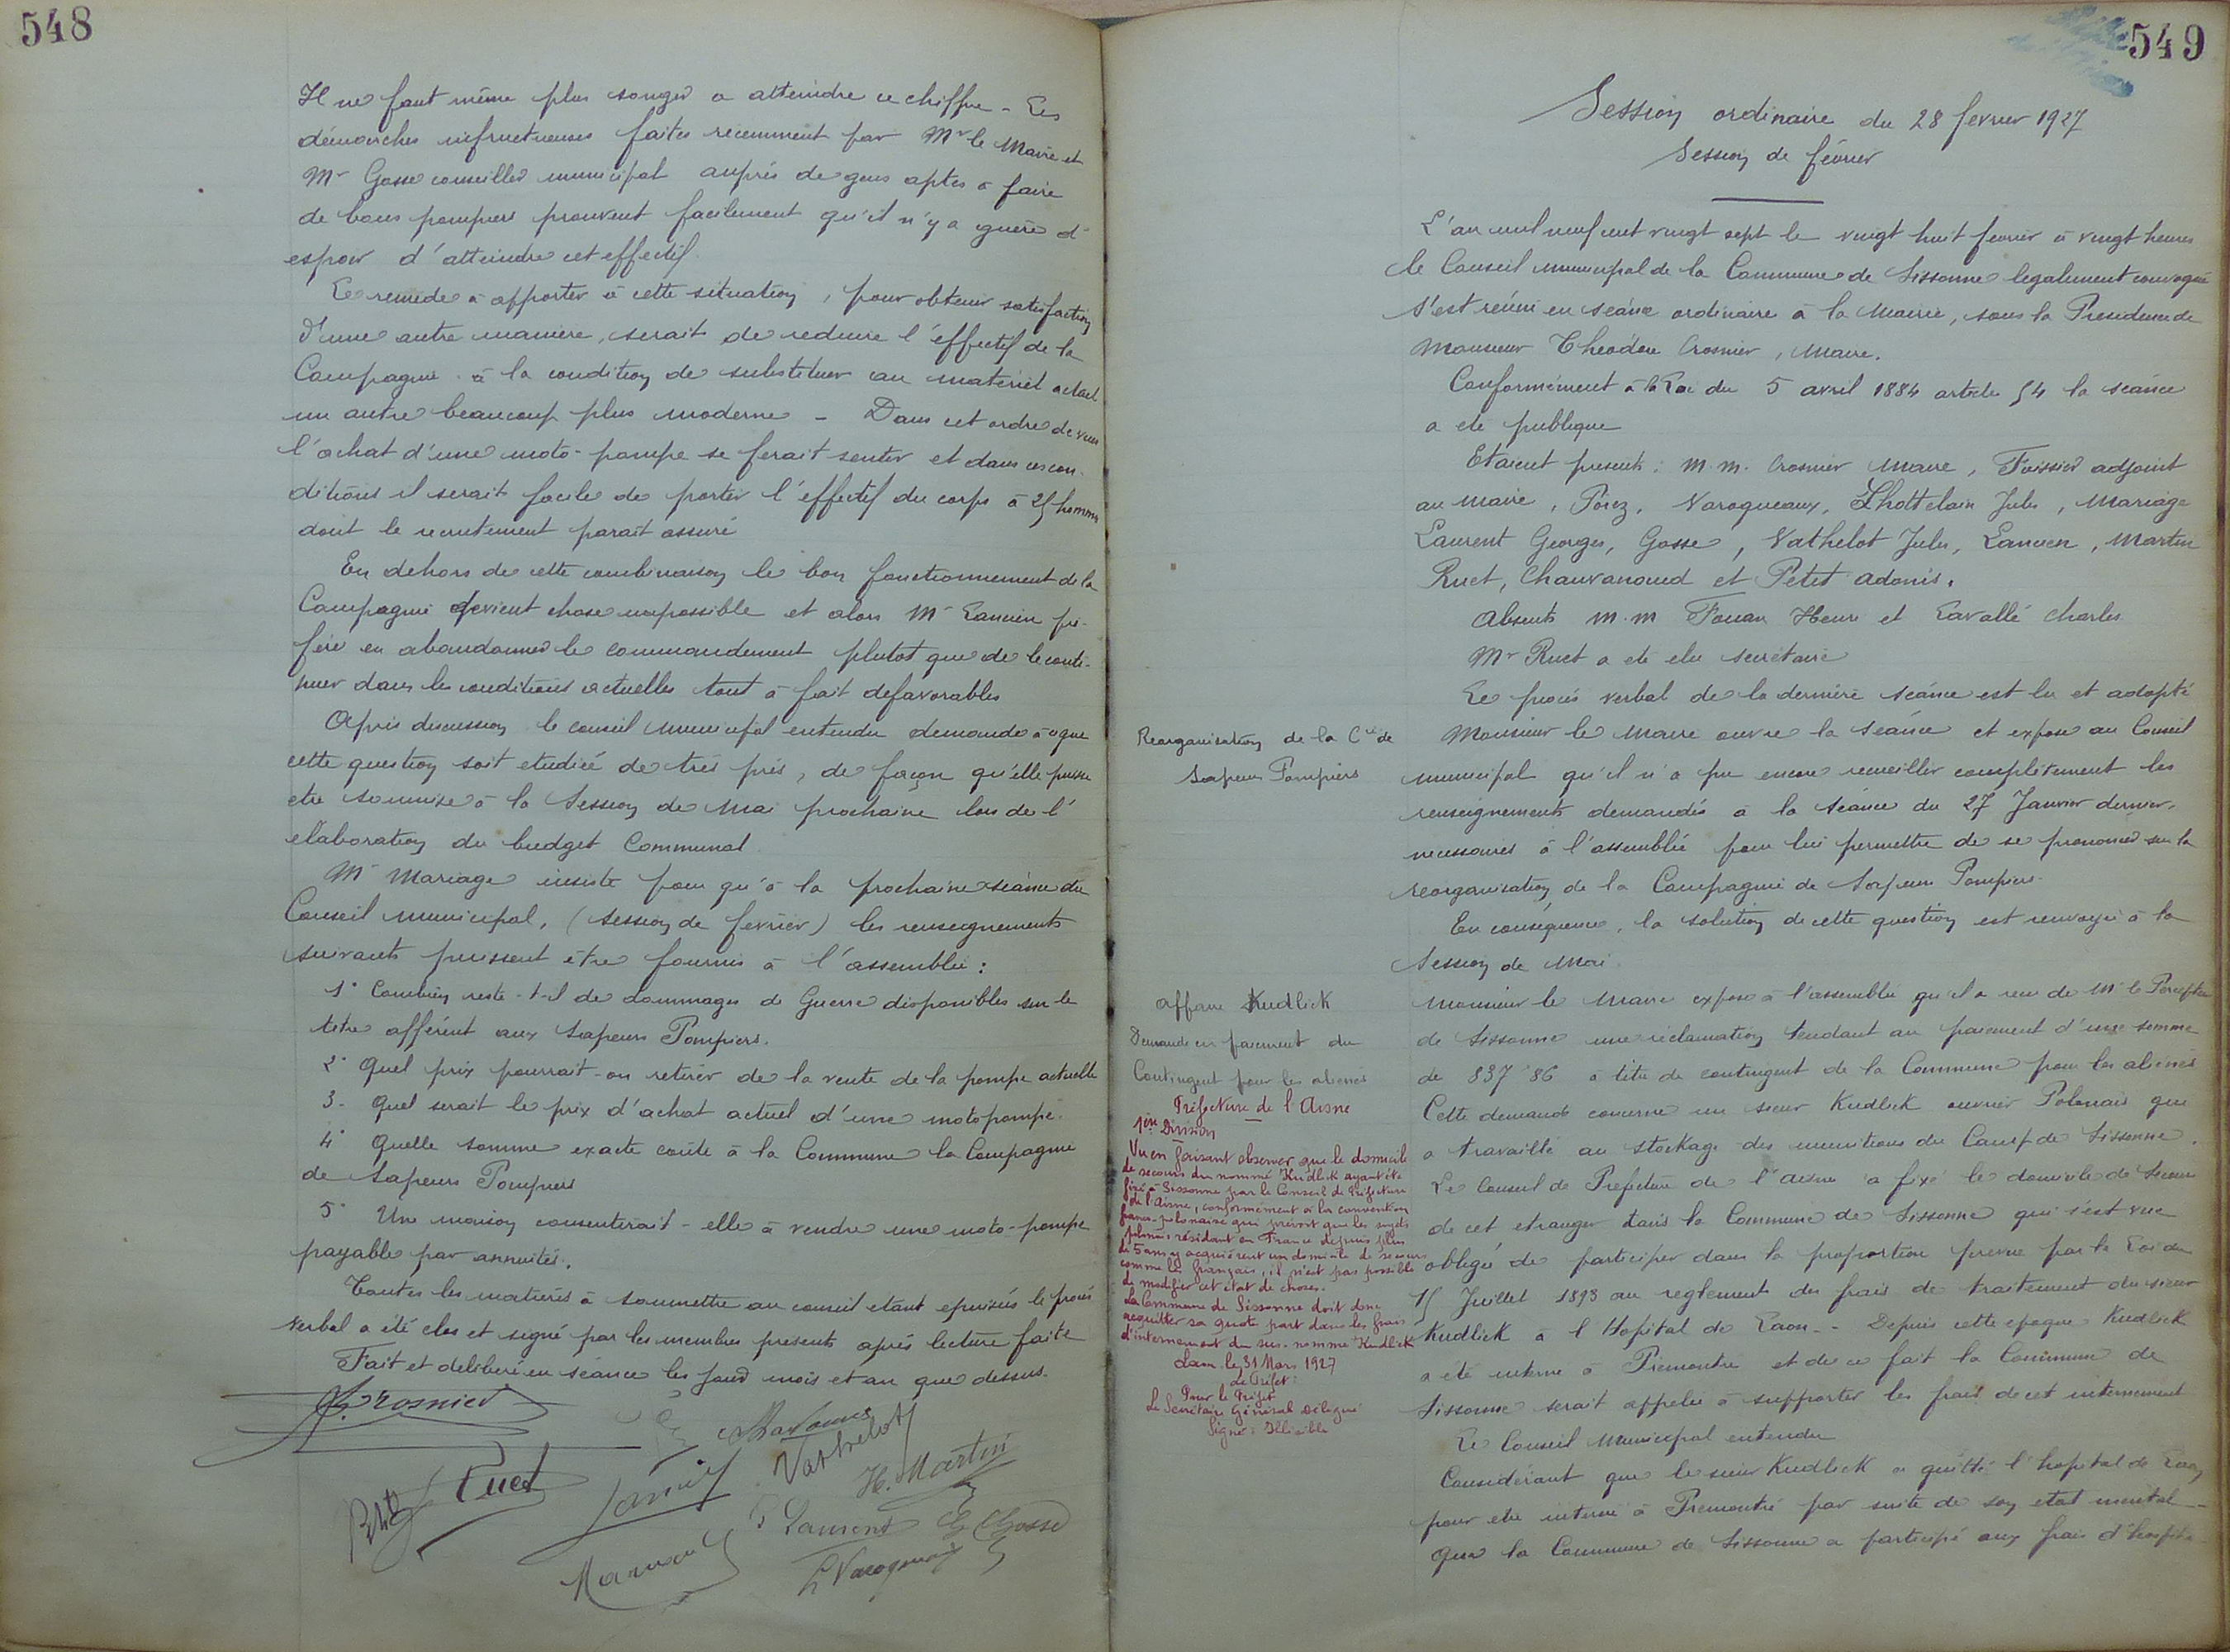 548
Il ne faut même plus songer a atteindre ce chiffre - Les
démarches infructueuses faites recemment par Mr le Maire et
Mr Gosse conseiller municipal auprès de gens aptes à faire
de bons pompiers prouvent facilement qu'il n'y a guère d'
espoir d'atteindre cet effectif.
Le remede à apporter à cette situation, pour obtenir satisfaction
d'une autre manière, serait de reduire l'effectif de la
Compagnie à la condition de substituer au matériel actuel
un autre beaucoup plus moderne - Dans cet ordre de vues
l'achat d'une moto-pompe se ferait sentir et dans ces con-
ditions il serait facile de porter l'effectif du corps à 25 hommes
dont le recrutement parait assuré
En dehors de cette combinaison le bon fonctionnement de la
Compagnie devient chose impossible et alors Mr Lanvien pré-
fère en abandonner le commandement plutot que de le conti-
nuer dans les conditions actuelles tout à fait defavorables
Après discussion le conseil municipal entendu demande à ce que
cette question soit etudiée de très près, de façon qu'elle puisse
etre soumise à la Session de Mai prochaine lors de l'
elaboration du budget Communal.
Mr Mariage insiste pour qu'à la prochaine séance du
Conseil municipal, (session de fevrier) les renseignements
suivants puissent être fournis à l'assemblée :
1° Combien reste-t-il de dommages de Guerre disponibles sur le
titre afférent aux Sapeurs Pompiers.
2° Quel prix pourrait-on retirer de la vente de la pompe actuelle
3° Quel serait le prix d'achat actuel d'une motopompe.
4° Quelle somme exacte coûte à la Commune la Compagnie
de Sapeurs Pompiers
5° Une maison consentirait-elle à vendre une moto-pompe
payable par annuités.
Toutes les matières à soumettre au conseil etant epuisées le procès
verbal a été clos et signé par les membres presents après lecture faite
Fait et deliberé en séance les jour mois et an que dessus.
Crosnier
Vathelot
H. Martin
Petit
Ruet
Laurent
E Gosse
Varoqueaux
549
Session ordinaire du 28 fevrier 1927
Session de février
L'an mil neuf cent vingt sept le vingt huit fevrier à vingt heures
le Conseil municipal de la Commune de Sissonne legalement convoqué
s'est réuni en séance ordinaire à la Mairie, sous la Presidence de
Monsieur Théodore Crosnier, Maire.
Conformément à la Loi du 5 avril 1884 article 54 la séance
a ete publique
Etaient presents : M.M. Crosnier Maire, Foissier adjoint
au Maire, Varoqueaux, Lhottelain Jules, Mariage
Laurent Georges, Gosse, Vathelot Jules, Lanvien, Martin
Ruet, Chauvanoud et Petit Adonis.
Absents M.M Fouan Henri et Lavallé Charles
Mr Ruet a eté elu secrétaire
Le procès verbal de la dernière séance est lu et adopté
Réorganisation de la Cie de
Sapeurs Pompiers
Monsieur le Maire ouvre la séance et expose au Conseil
municipal qu'il n'a pu encore recueillir complètement les
renseignements demandés à la séance du 27 Janvier dernier,
necessaires à l'assemblée pour lui permettre de se prononcer sur la
reorganisation de la Compagnie de Sapeurs Pompiers.
En conséquence, la solution de cette question est renvoyée à la
Session de Mai.
Affaire Kudlick
Demande en paiement du
Contingent pour les aliénés
Monsieur le Maire expose à l'assemblée qu'il a reçu de Mr le Percepteur
de Sissonne une réclamation tendant au paiement d'une somme
de 837 86 à titre de contingent de la Commune pour les aliénés
Cette demande concerne un sieur Kudlick ouvrier Polonais qui
a travaillé au stockage des munitions du Camp de Sissonne.
Le Conseil de Préfecture de l'Aisne a fixé le domicile de Secours
de cet etranger dans la Commune de Sissonne qui s'est vue
obligée de participer dans la proportion prevue par la Loi du
15 Juillet 1893 au reglement des frais de traitement du sieur
Kudlick à l'Hopital de Laon - Depuis cette epoque Kudlick
a eté interné à Premontré et de ce fait la Commune de
Sissonne serait appelée à supporter les frais de cet internement
Le Conseil Municipal entendu
Considérant que le sieur Kudlick a quitté l'hopital de Laon
pour etre interné à Premontré par suite de son etat mental -
Que la Commune de Sissonne a participé aux frais d'hospita-
Préfecture de l'Aisne
1ère Division
Vu en faisant observer que le domicile
de secours du nommé Kudlick ayant été
fixé à Sissonne par le Conseil de Préfecture
de l'Aisne, conformément à la convention
franco-polonaise qui prévoit que les sujets
polonais résidant en France depuis plus
de 5 ans y acquièrent un domicile de secours
comme les français, il n'est pas possible
de modifier cet état de choses.
La Commune de Sissonne doit donc
acquitter sa quote part dans les frais
d'internement du sus-nommé Kudlick
Laon, le 31 Mars 1927
Le Préfet :
Pour le Préfet
Le Secrétaire Général délégué
Signé : Illisible